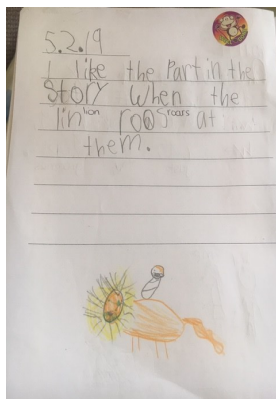 5.2.19
I like the Part in the
StoRY when the
lin lion roos roars at
them.